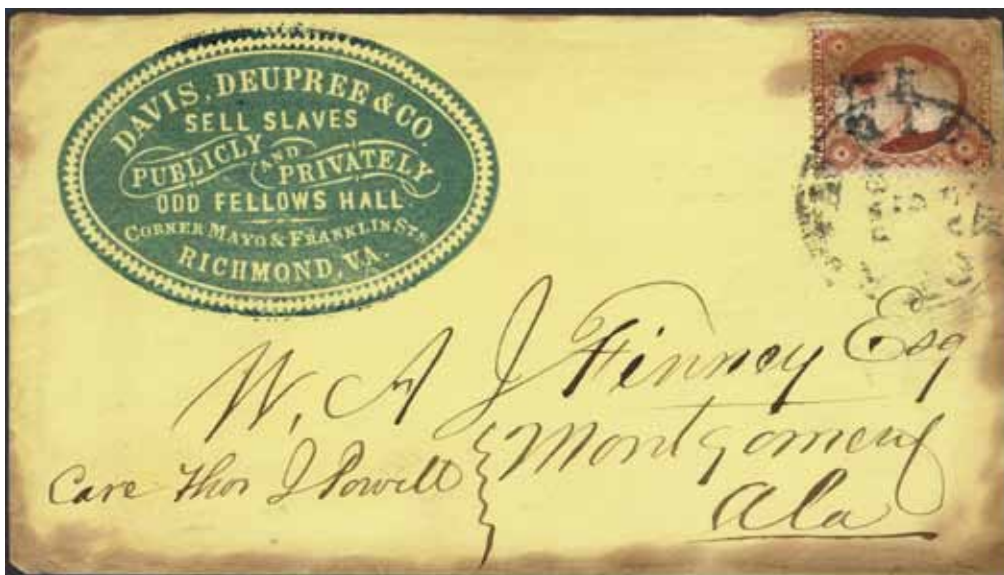 DAVIS, DEUPREE & CO.
SELL SLAVES
PUBLICLY AND PRIVATELY
ODD FELLOWS HALL
CORNER MAYO & FRANKLIN STS
RICHMOND, VA.
W. A J Finney Esq
Care Thos J Powell
Montgomery
Ala